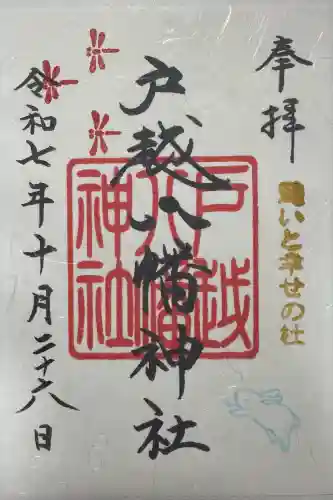 奉拝
願いと幸せの社
戸越八幡神社
戸越八幡神社
令和七年十月二十六日